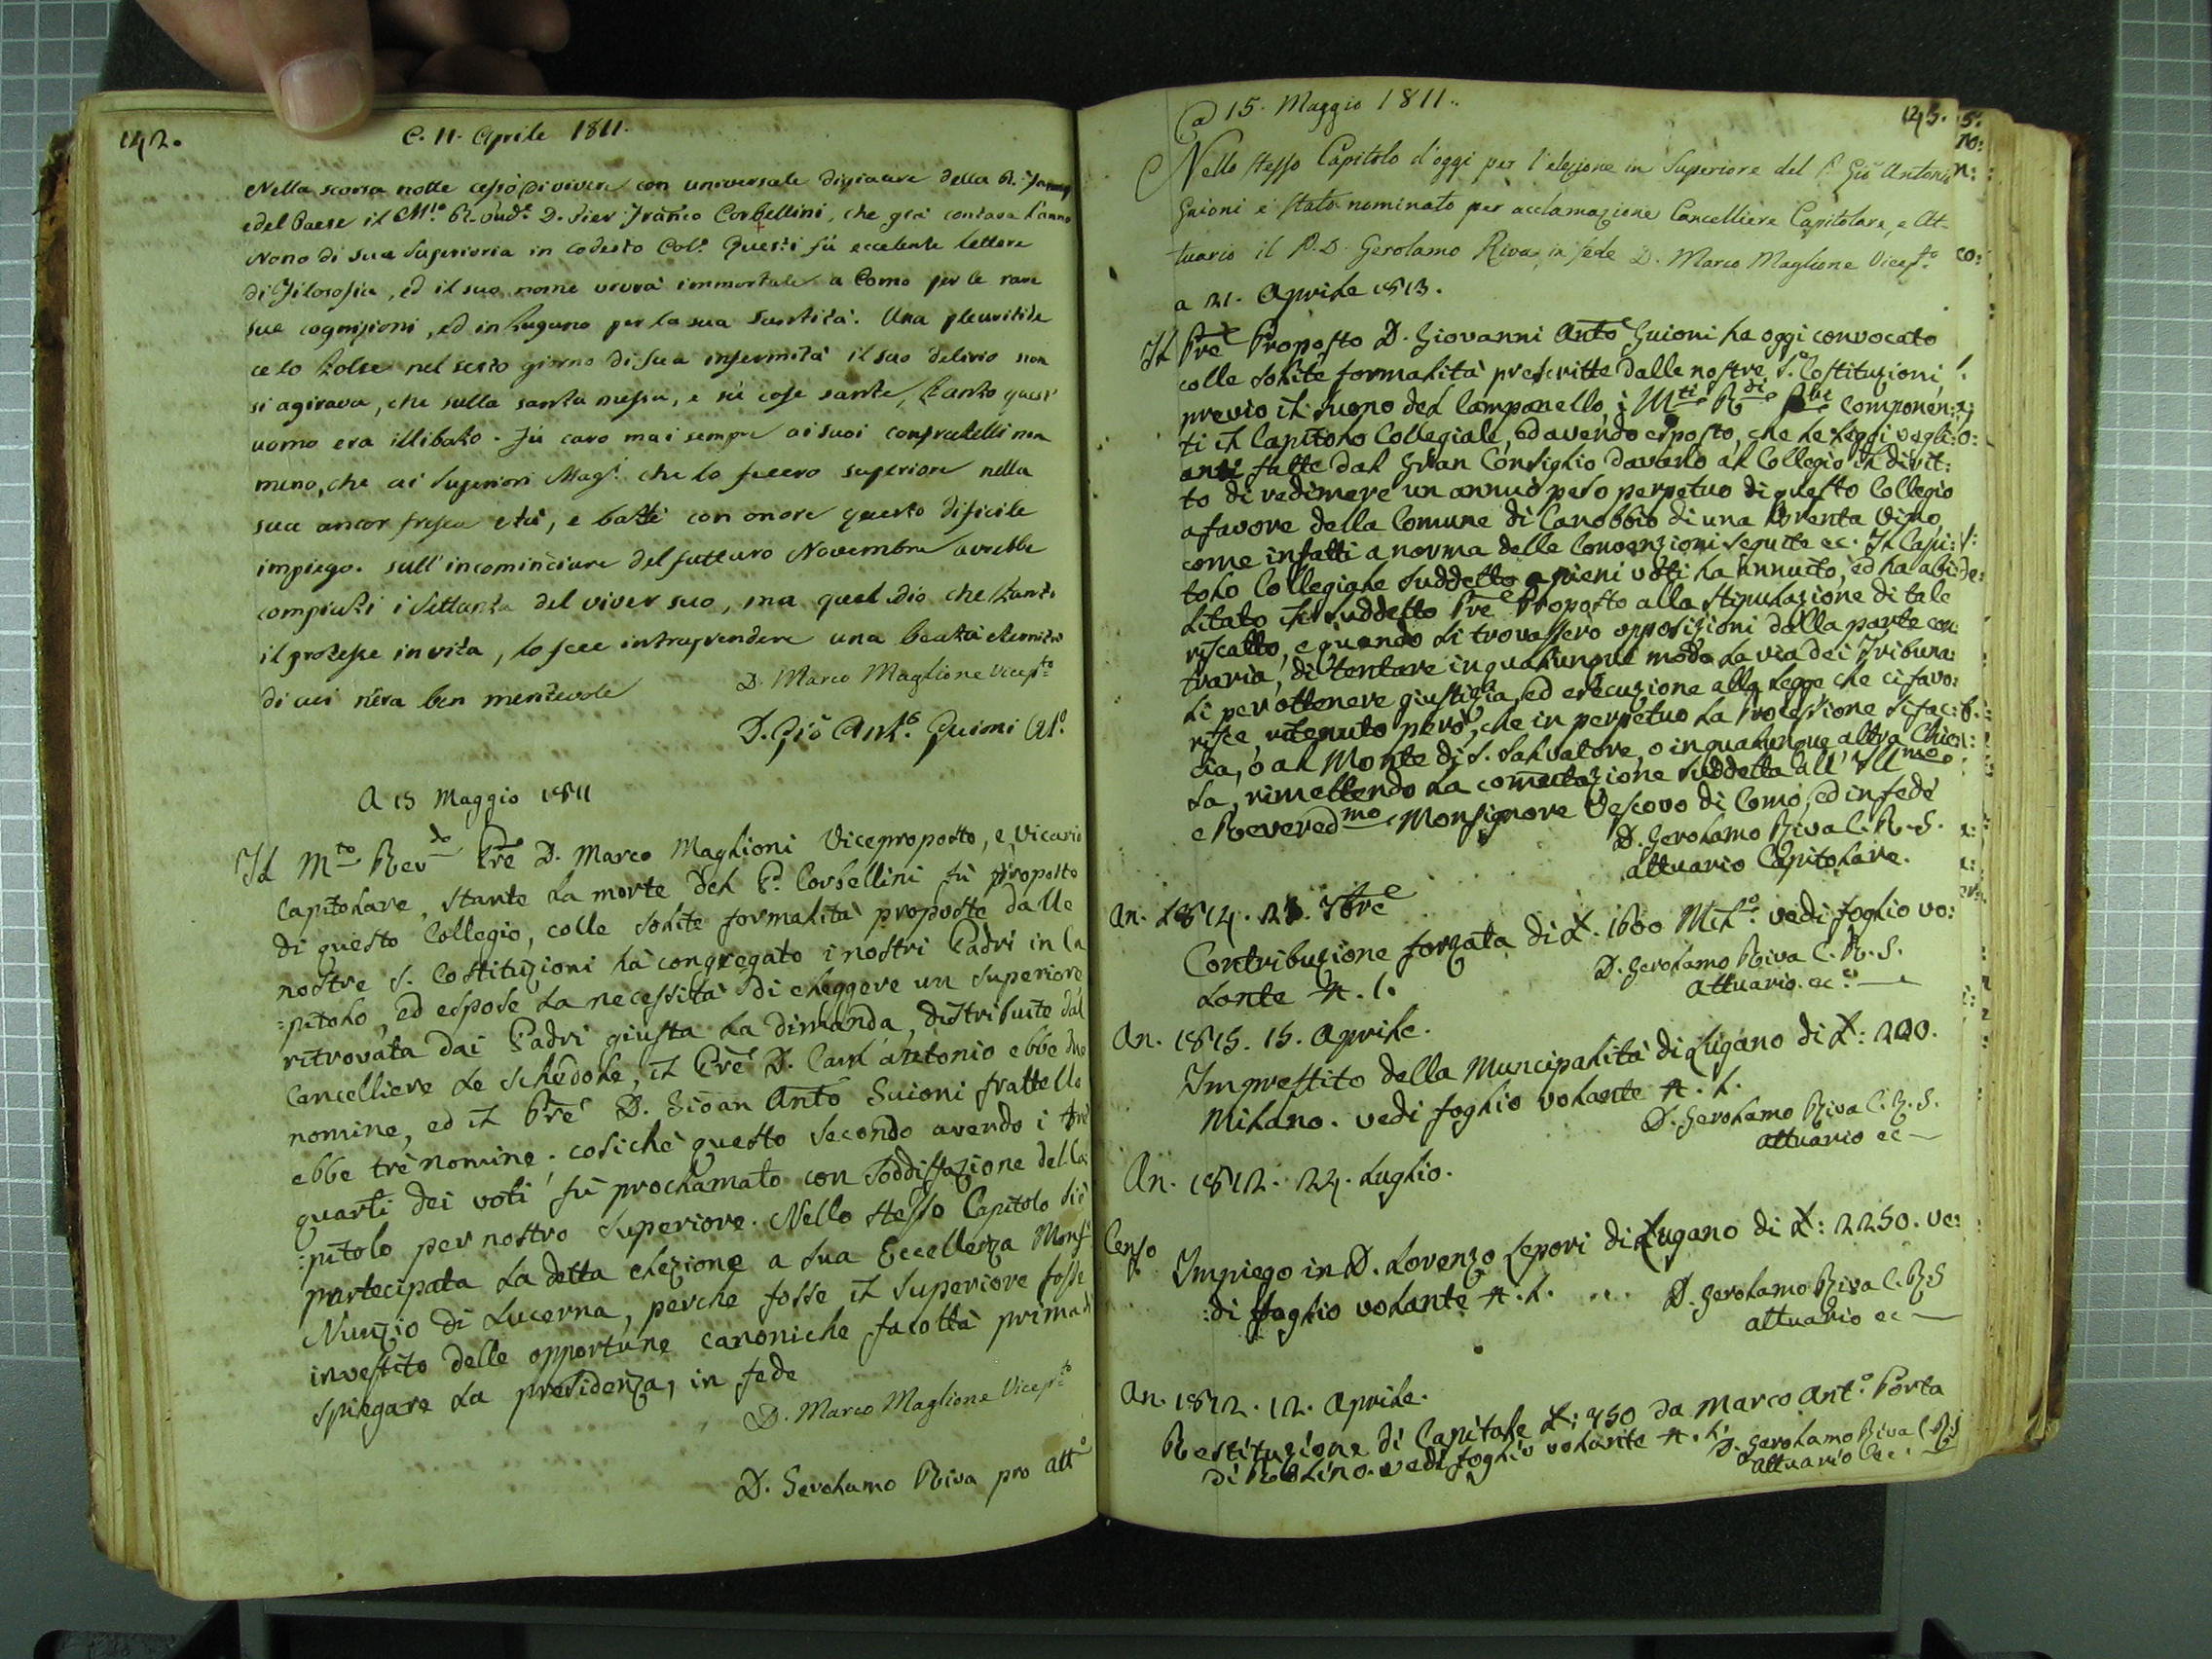 142.
C. 11. Aprile 1811.
Nella scorsa notte cessò di vivere con universale dispiacere della R.
e del Paese il M.to R. Pud.e D. Pier Franco Corbellini, che già contava l'anno
Nono di sua Superioria in codesto Col.o Questi fù eccelente lettore
di Filosofia, ed il suo nome vivrà immortale a Como per le rare
sue cognizioni, ed in Lugano per la sua Santità. Una pleuritide
ce lo tolse nel sesto giorno di sua infermità il suo delirio non
si agirava, che sulla santa messa, e sù cose sante, tanto quest'
uomo era illibato. Fù caro mai sempre ai suoi confratelli non
meno, che ai Superiori Mag.i che lo fecero superiore nella
sua ancor fresca età, e battè con onore questo dificile
impiego. sull'incominciare del futturo Novembre avrebbe
compiuti i Settanta del viver suo, ma quel dio che tanto
il protesse in vita, lo fece intraprendere una beata eternità
di cui n'era ben meritevole
D. Marco Maglione Vicep.to
D. Gio Ant.o Guioni Att.o
A 15 Maggio 1811
Il M.to Rev.do Pre D. Marco Maglioni Viceproposto, e Vicario
Capitolare, stante la morte del P. Corbellini fù proposto
di questo Collegio, colle solite formalità proposte dalle
nostre S. Costituzioni hà congregato i nostri Padri in Ca
:pitolo, ed espose la necessità di eleggere un superiore
ritrovata dai Padri giusta la dimanda, distribuite dal
Cancelliere le schedole, il Pre D. Carl'antonio ebbe due
nomine, ed il Pre D. Gioan Anto Guioni frattello
ebbe trè nomine; cosichè questo secondo avendo i tre
quarti dei voti fù proclamato con soddisfazione del Ca
:pitolo per nostro Superiore. Nello stesso Capitolo si è
partecipata la detta elezione a Sua Eccellenza Mons.r
Nunzio di Lucerna, perchè fosse il Superiore fosse
investito delle opportune canoniche facoltà prima di
spiegare la presidenza, in fede
D. Marco Maglione Vicep.to
D. Gerolamo Riva pro att.o
143.
a 15. Maggio 1811..
Nello stesso Capitolo d'oggi per l'elezione in Superiore del P. Gio Antonio
Guioni è stato nominato per acclamazione Cancelliere Capitolare, e At-
tuario il P. D. Gerolamo Riva, in fede D. Marco Maglione Vicep.to
a 21. Aprile 1813.
Il Pre Proposto D. Giovanni Anto Guioni ha oggi convocato
colle solite formalità prescritte dalle nostre S. Costituzioni,
previo il suono del Campanello, i M.ti R.di componen:
ti il Capitolo Collegiale, ed avendo esposto, che le Leggi vegli:
anti fatte dal Gran Consiglio davano al Collegio il dirit:
to di redimere un annuo peso perpetuo di questo Collegio
a favore della Comune di Canobbio di una Brenta Vino,
come infatti a norma delle Convenzioni seguite ec. Il Capi:
tolo Collegiale suddetto a pieni voti ha annuito, ed ha abi:
litato il suddetto Pre Proposto alla stipulazione di tale
riscatto, e quando si trovassero opposizioni dalla parte con
traria, di tentare in qualunque modo la via dei Tribuna:
li per ottenere giustizia, ed esecuzione alla legge che ci favo:
risce, ritenuto però, che in perpetuo la Processione si fac:
cia, o al Monte di S. Salvatore, o in qualunque altra Chie
sa, rimettendo la comutazione suddetta all'Ill.mo,
e Revered.mo Monsignore Vescovo di Como, ed in fede
D. Gerolamo Riva C. R. S.
attuario Capitolare.
An. 1814. 23. 7bre
Contribuzione forzata di L. 1600 Mil.o vedi foglio vo:
lante N. 1.
D. Gerolamo Riva C. R. S.
attuario. ec.
An. 1815. 15. Aprile.
Imprestito della Muncipalità di Lugano di L: 200.
Milano. vedi foglio volante N. 1.
D. Gerolamo Riva C. R. S.
attuario ec
An. 1812. 24. Luglio.
Censo
Impiego in D. Lorenzo Lepori di Lugano di L: 2250. ve:
:di foglio volante N. 1. ...
D. Gerolamo Riva C. R. S
attuario ec
An. 1812. 12. Aprile.
Restituzione di Capitale L: 750 da Marco Ant.o Porta
di vedi foglio volante N. 1.
D. Gerolamo Riva C. R. S
attuario